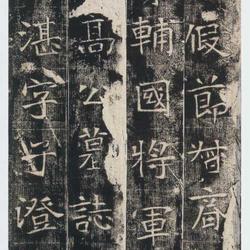 假節督齊
輔國將軍
髙公墓誌
湛字子澄